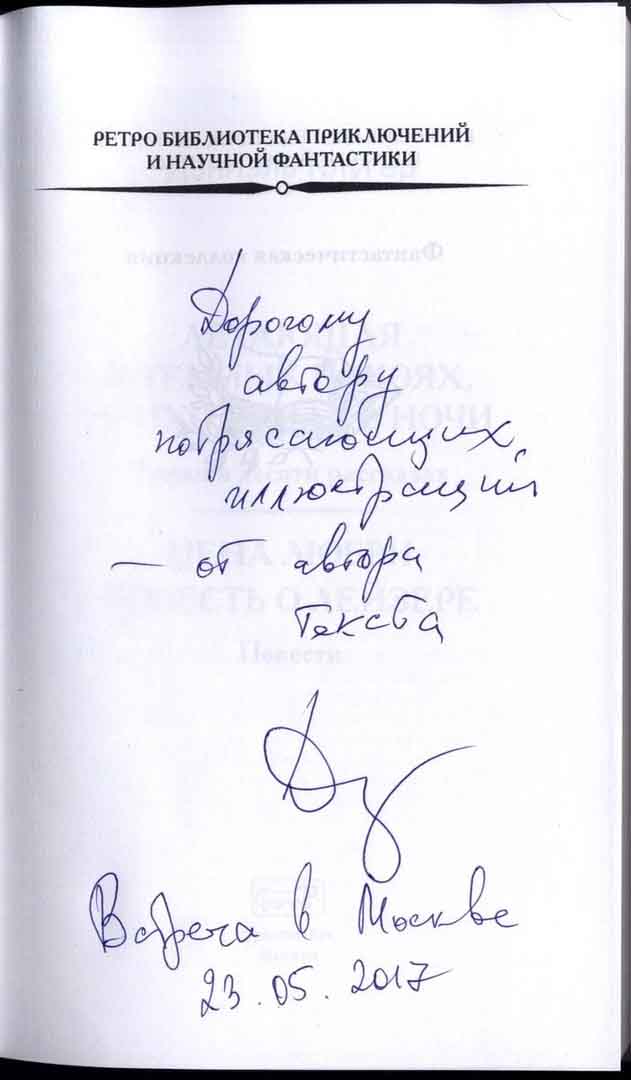 РЕТРО БИБЛИОТЕКА ПРИКЛЮЧЕНИЙ
И НАУЧНОЙ ФАНТАСТИКИ
Дорогому
автору
потрясающих
иллюстраций
— от автора
текста
Встреча в Москве
23.05.2017